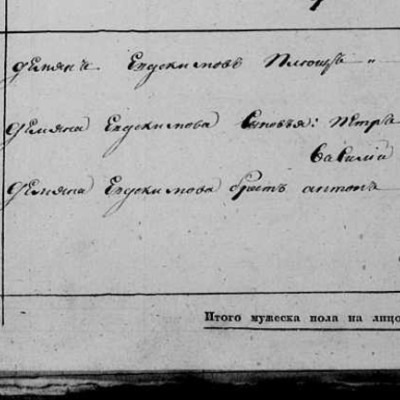 Демянъ Евдокимовъ Плющъ "
Демяна Евдокимова Сыновья: Петръ
Василій
Демяна Евдокимова братъ антонъ
Итого мужеска пола на лицо